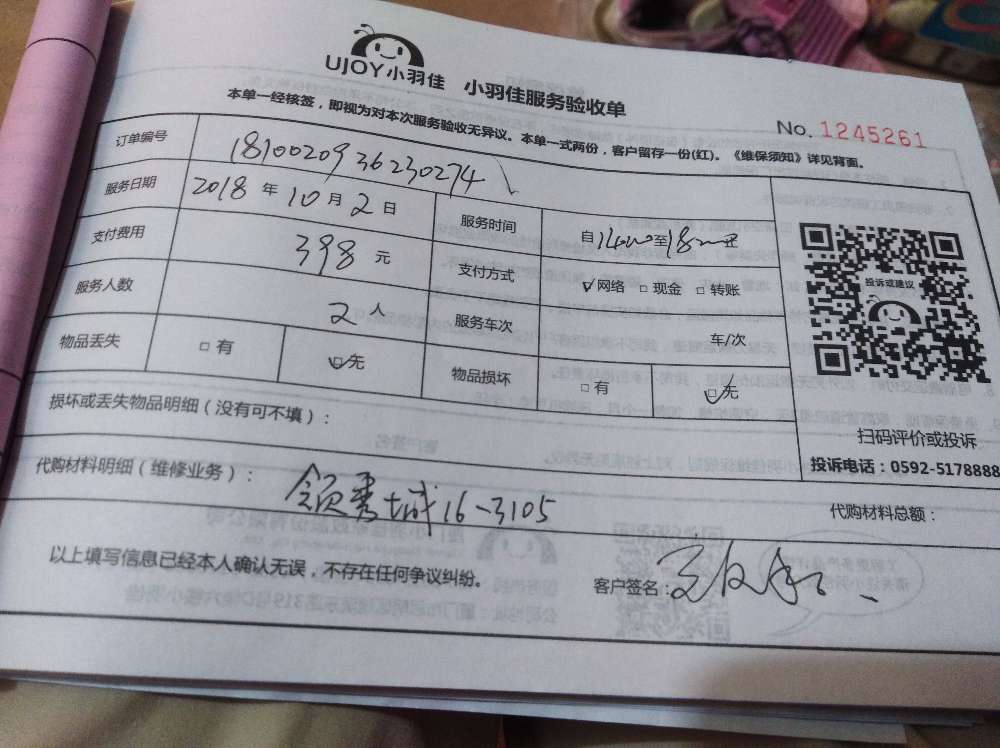 UJOY小羽佳 小羽佳服务验收单
本单一经核签，即视为对本次服务验收无异议。本单一式两份，客户留存一份(红)。《维保须知》详见背面。
No. 1245261
订单编号 181002093623027４
服务日期 2018 年 10 月 2 日 服务时间 自14:00至18:00止
支付费用 398 元 支付方式 网络 现金 转账
服务人数 2 人 服务车次 车/次
物品丢失 有 无 物品损坏 有 无
投诉或建议
扫码评价或投诉
投诉电话：0592-5178888
损坏或丢失物品明细（没有可不填）：
代购材料明细（维修业务）： 领秀城16-3105
代购材料总额：
以上填写信息已经本人确认无误，不存在任何争议纠纷。
客户签名：